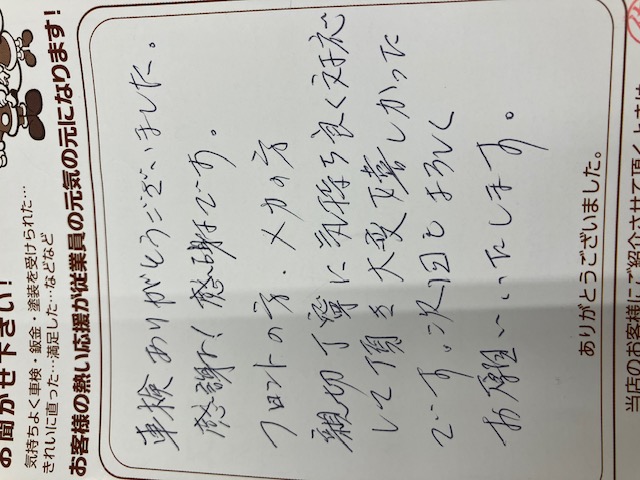 お聞かせ下さい!
気持ちよく車検・鈑金・塗装を受けられた…
きれいに直った…満足した…などなど
お客様の熱い応援が従業員の元気の元になります!
車検ありがとうございました。
感謝!感謝です。
フロントの方・メカの方
親切丁寧に気持ち良く対応
して頂き大変嬉しかった
です。次回もよろしく
お願いいたします。
ありがとうございました。
当店のお客様にご紹介させて頂く